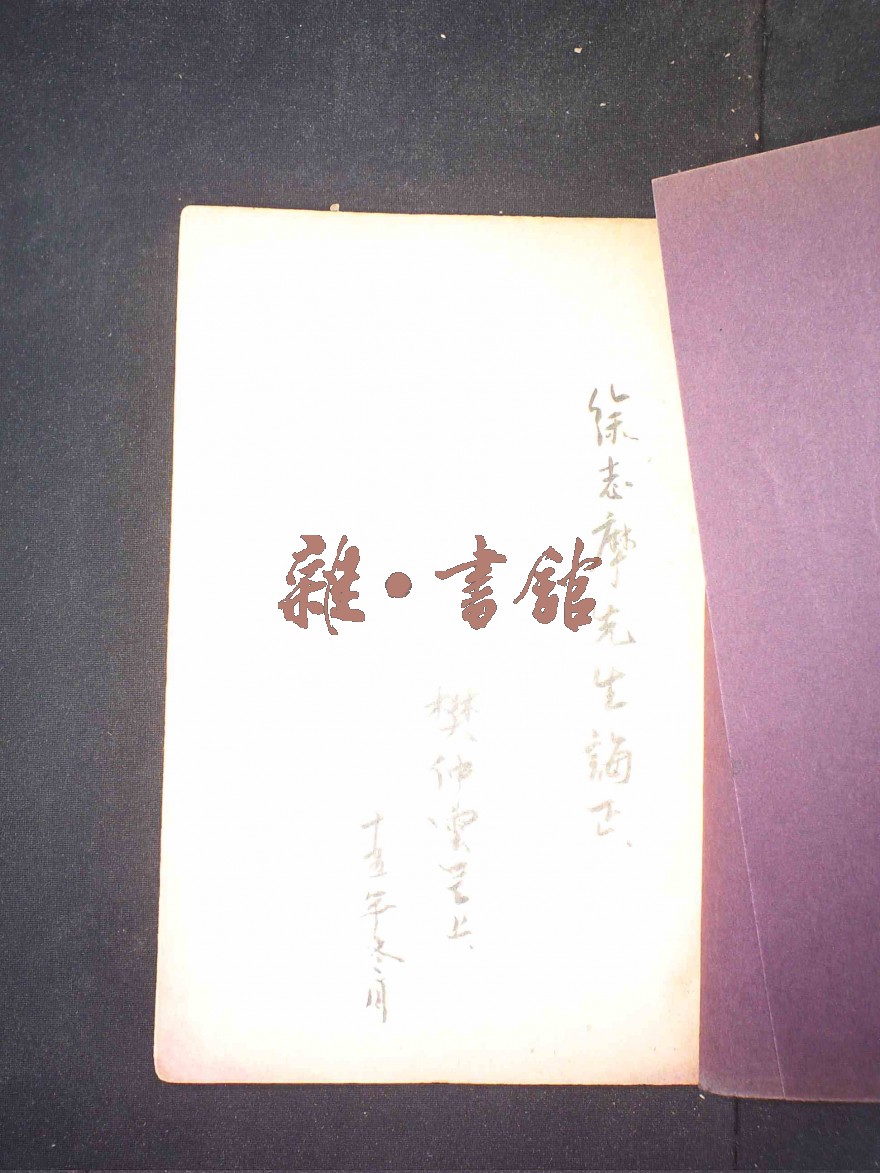 徐志摩先生誨正、
樊仲雲呈上、
十五年冬月
雜・書館